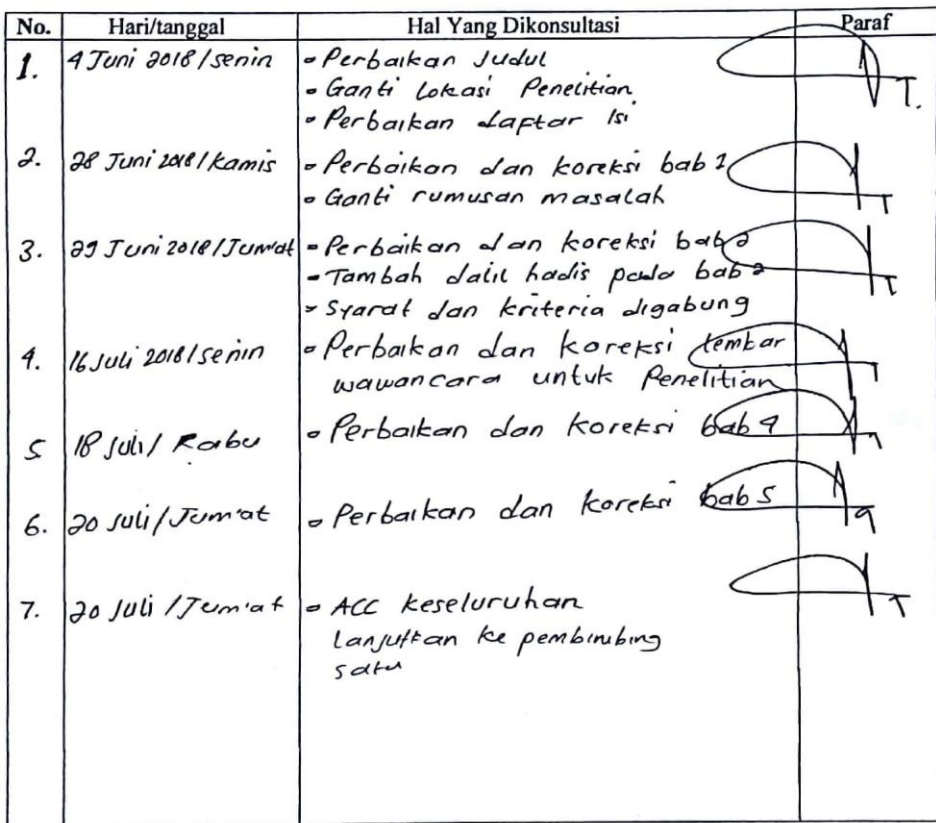 No. Hari/tanggal Hal Yang Dikonsultasi Paraf
1. 4 Juni 2018/senin - Perbaikan Judul
- Ganti Lokasi Penelitian
- Perbaikan daftar Isi
2. 28 Juni 2018/kamis - Perbaikan dan koreksi bab 1
- Ganti rumusan masalah
3. 29 Juni 2018/Jum'at - Perbaikan dan koreksi bab 2
- Tambah dalil hadis pada bab 2
- Syarat dan kriteria digabung
4. 16 Juli 2018/senin - Perbaikan dan koreksi lembar
wawancara untuk Penelitian
5 18 Juli/ Rabu - Perbaikan dan koreksi bab 4
6. 20 Juli/Jum'at - Perbaikan dan koreksi bab 5
7. 20 Juli /Jum'at - ACC keseluruhan
Lanjutkan ke pembimbing
satu